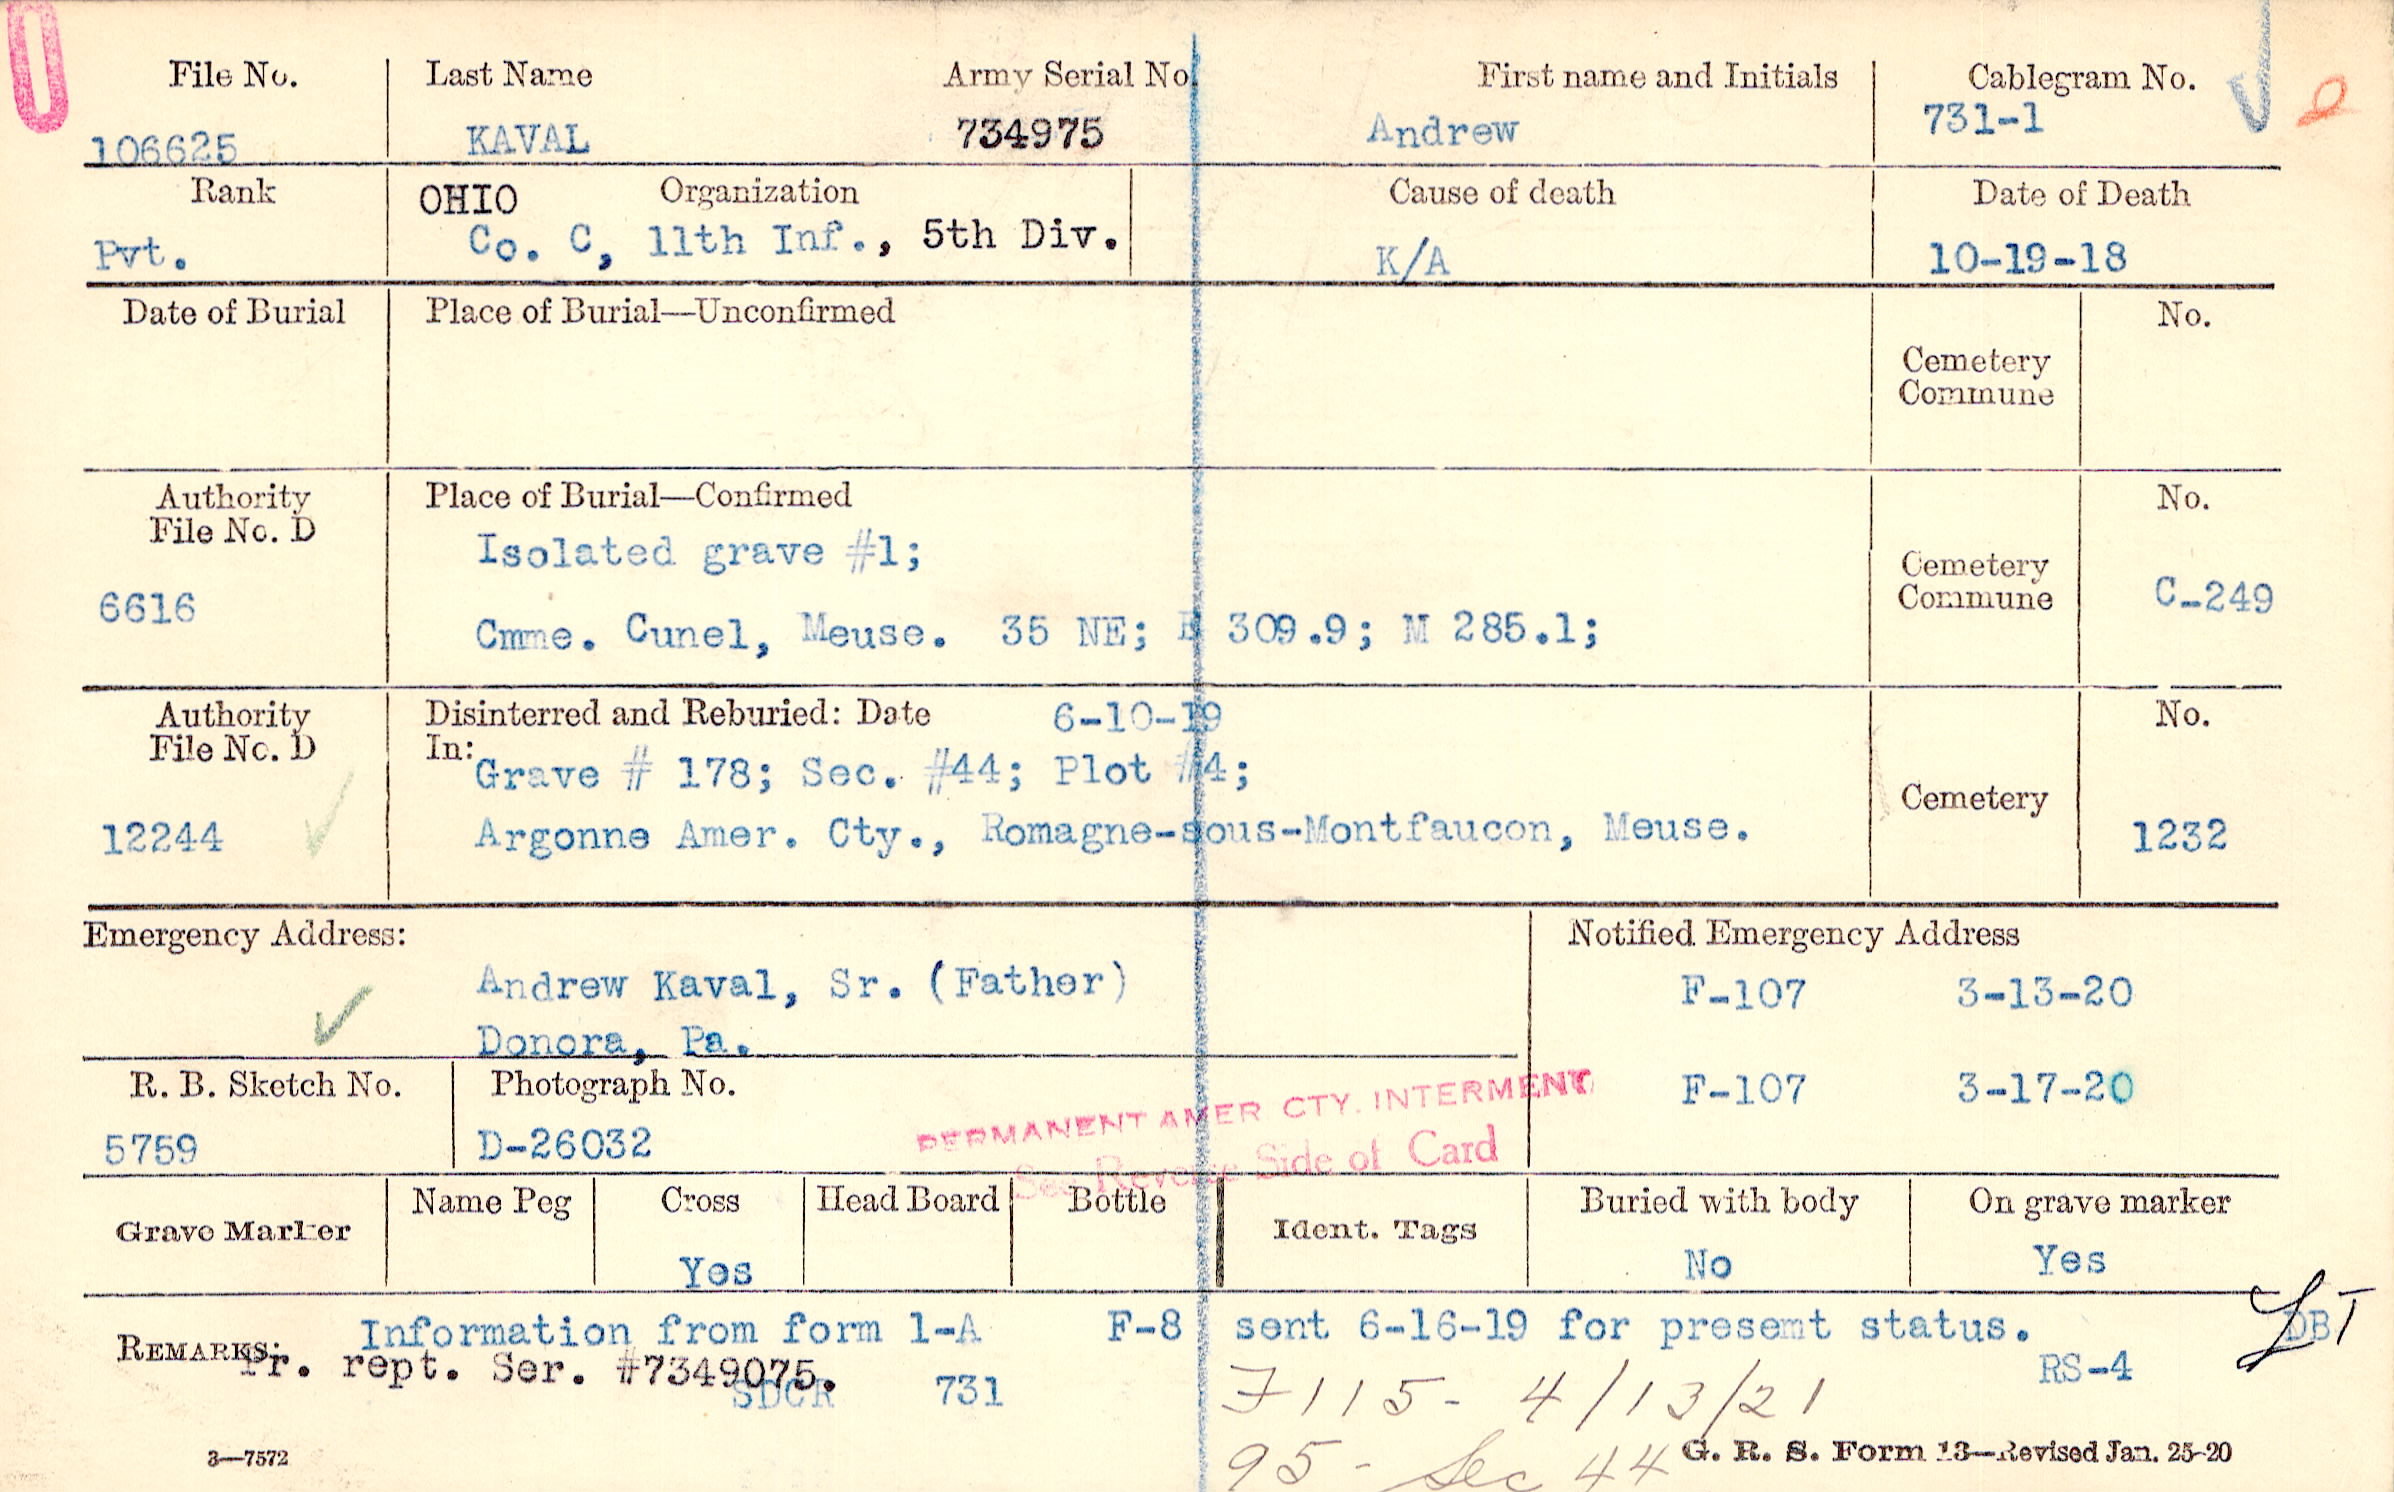 File No. Last Name Army Serial No. First name and Initials Cablegram No.
106625 KAVAL 734975 Andrew 731-1
Rank OHIO Organization Cause of death Date of Death
Pvt. Co. C, 11th Inf., 5th Div. K/A 10-19-18
Date of Burial Place of Burial—Unconfirmed No.
Cemetery
Commune
Authority Place of Burial—Confirmed No.
File No. D
Isolated grave #1;
Cemetery
6616 Commune C-249
Cmne. Cunel, Meuse. 35 NE; E 309.9; M 285.1;
Authority Disinterred and Reburied: Date 6-10-19 No.
File No. D In:
Grave # 178; Sec. #44; Plot #4;
Cemetery
12244 Argonne Amer. Cty., Romagne-sous-Montfaucon, Meuse. 1232
Emergency Address: Notified Emergency Address
Andrew Kaval, Sr. (Father) F-107 3-13-20
Donora, Pa.
R. B. Sketch No. Photograph No. F-107 3-17-20
PERMANENT AMER CTY. INTERMENT
5759 D-26032
See Reverse Side of Card
Grave Marker Name Peg Cross Head Board Bottle Ident. Tags Buried with body On grave marker
Yes No Yes
REMARKS: Information from form 1-A F-8 sent 6-16-19 for present status. DB
Pr. rept. Ser. #7349075. RS-4
SDCR 731
F115- 4/13/21
95 - Sec 44
3—7572 G. R. S. Form 13—Revised Jan. 25-20